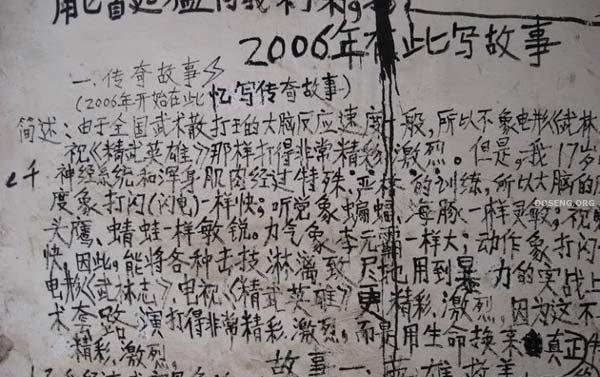 2006年在此写故事
一.传奇故事
(2006年开始在此忆写传奇故事)
简述:由于全国武术散打王的大脑反应速度一般,所以不象电影《武林
视《精武英雄》那样打得非常精彩,激烈。但是,我17岁
神经系统和浑身肌肉经过"特殊:亚林"的训练,所以大脑的
度象打闪(闪电)一样快;听觉象蝙蝠、海豚一样灵敏;视
头鹰、蜻蛙一样敏锐。力气象李元霸一样大;动作象打闪
快,因此,能将各种击技淋漓致尽地用到暴力的实战上
电影《武林志》、电视《精武英雄》更精彩,激烈,因为这不
术套路演打得非常精彩,激烈,而是用生命换来 真正
精彩,激烈。
故事一.英雄故事
DOSENG.ORG